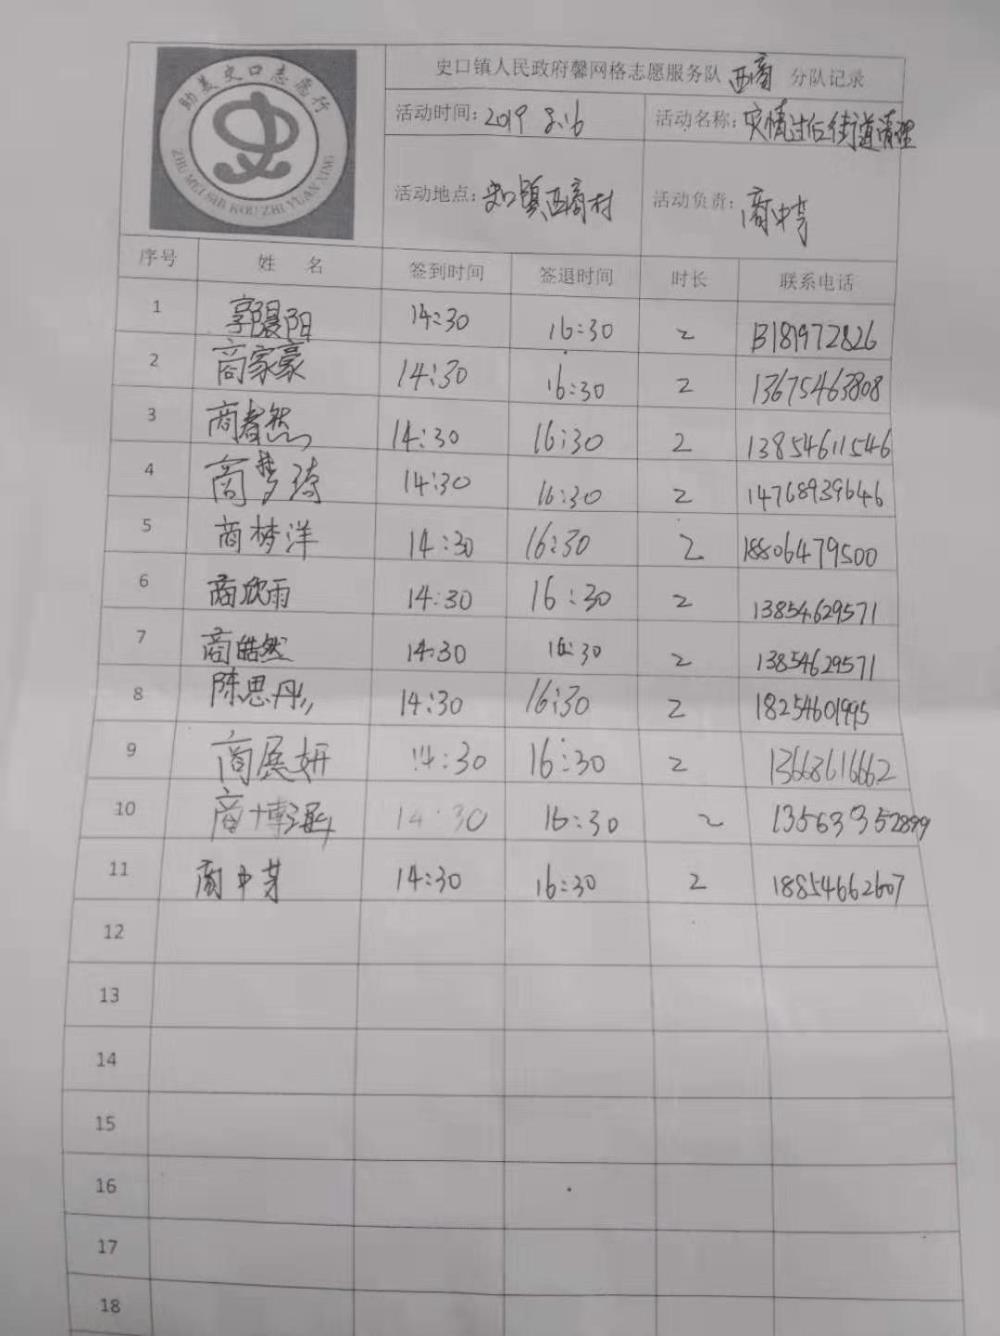 助美史口志愿行
史
ZHU MEI SHI KOU ZHI YUAN XING
史口镇人民政府馨网格志愿服务队 西商 分队记录
活动时间: 2019 8.16 活动名称: 灾情过后街道清理
活动地点: 史口镇西商村 活动负责:
序号 姓 名 签到时间 签退时间 时长 联系电话
1 郭晨阳 14:30 16:30 2 13181972826
2 商家豪 14:30 16:30 2 13675463808
3 商春然 14:30 16:30 2 13854611546
4 商梦琦 14:30 16:30 2 14768939646
5 商梦洋 14:30 16:30 2 18806479500
6 商欣雨 14:30 16:30 2 13854629571
7 商皓然 14:30 16:30 2 13854629571
8 陈思丹 14:30 16:30 2 18254601995
9 商展妍 14:30 16:30 2 13668616662
10 商博涵 14:30 16:30 2
11 14:30 16:30 2 18854662607
12
13
14
15
16
17
18